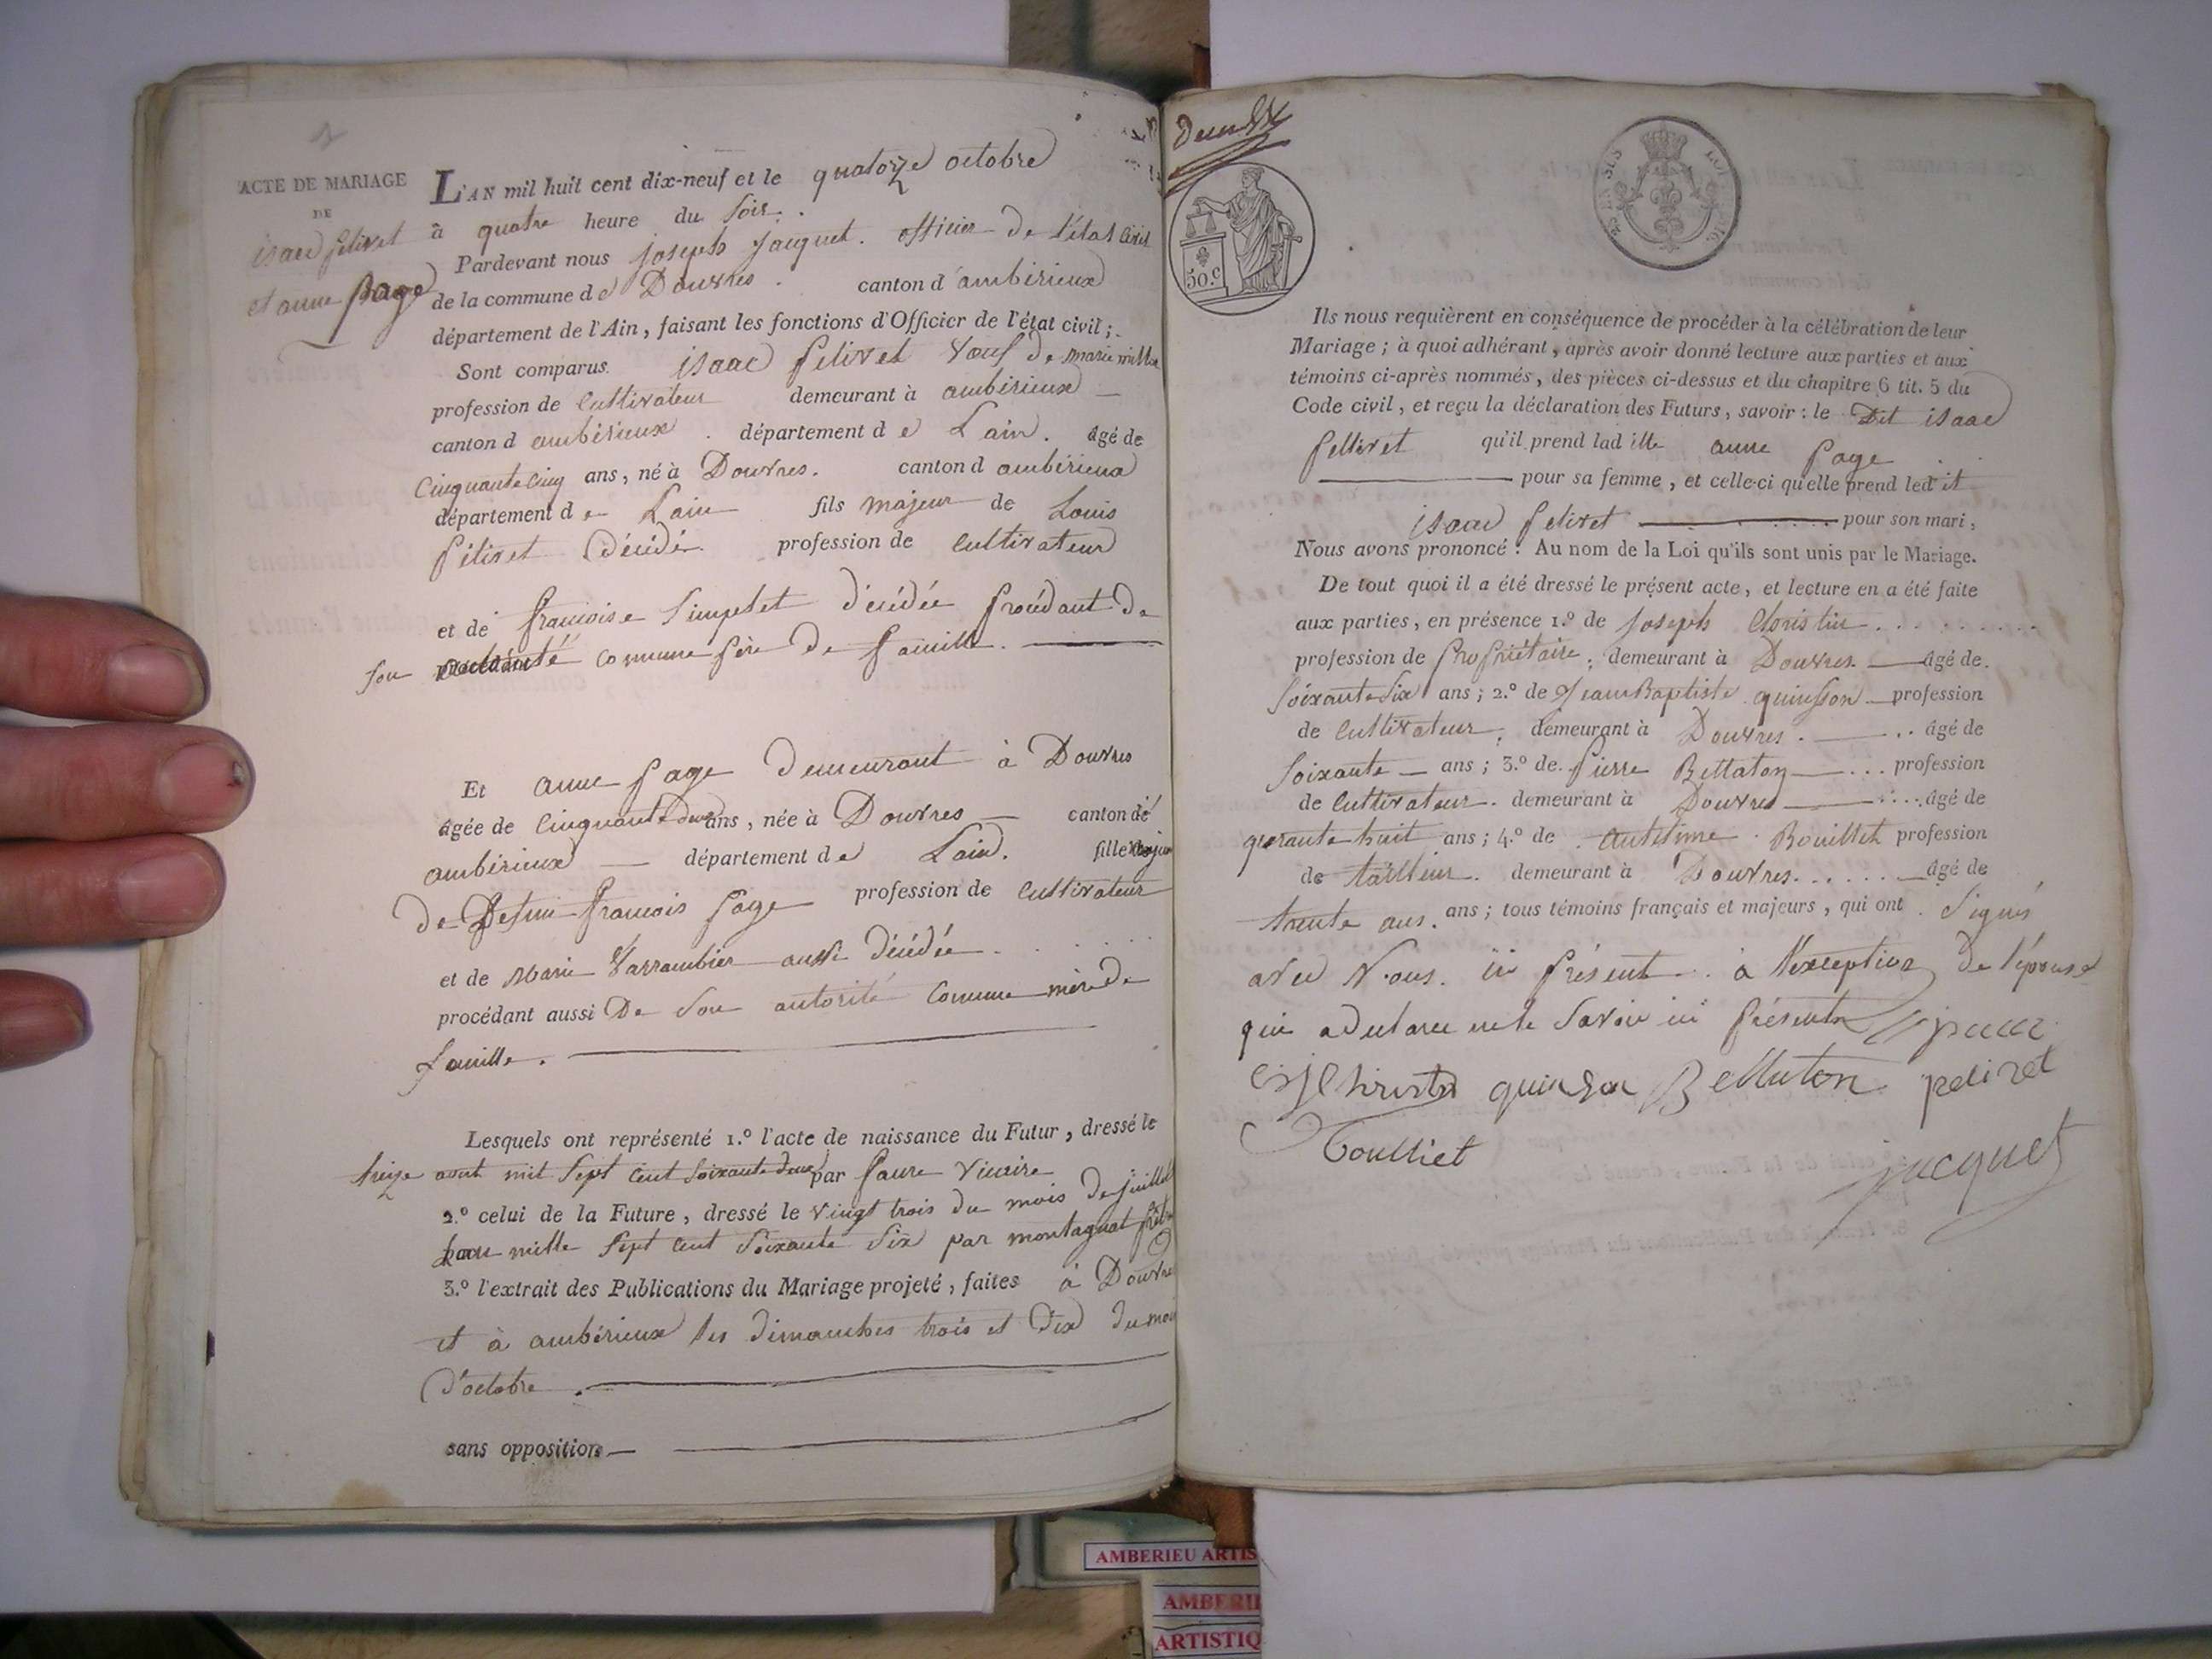 ACTE DE MARIAGE
DE
isaac pelivet
et anne page
L'AN mil huit cent dix-neuf et le quatorze octobre
à quatre heure du soir.
Pardevant nous joseph jacquet. officier de l'état civil
de la commune de Douvres. canton d'ambérieux
département de l'Ain, faisant les fonctions d'Officier de l'état civil;
Sont comparus. isaac pelivet veuf de marie
profession de cultivateur demeurant à ambérieux
canton d ambérieux. département de Lain. âgé de
cinquante cinq ans, né à Douvres. canton d ambérieux
département de Lain fils majeur de Louis
pélivet décédé. profession de cultivateur
et de francoise décédée procédant de
son autorité comme père de famille.
Et anne page demeurant à Douvres
âgée de cinquante deux ans, née à Douvres canton dé
ambérieux département de Lain. fille majeur
de Defun francois page profession de cultivateur
et de Marie Varrambier aussi décédée
procédant aussi De son autorité comme mère de
famille.
Lesquels ont représenté 1.º l'acte de naissance du Futur, dressé le
treize aout mil sept cent soixante deux par faure vicaire
2.º celui de la Future, dressé le vingt trois du mois de juillet
mille sept cent soixante six par montagnat prêtre
3.º l'extrait des Publications du Mariage projeté, faites à Douvres
et à ambérieux les dimanches trois et dix du mois
d'octobre.
sans opposition
50.c
Ils nous requièrent en conséquence de procéder à la célébration de leur
Mariage; à quoi adhérant, après avoir donné lecture aux parties et aux
témoins ci-après nommés, des pièces ci-dessus et du chapitre 6 tit. 5 du
Code civil, et reçu la déclaration des Futurs, savoir: le Dit isaac
pellivet qu'il prend lad itte anne page
pour sa femme, et celle-ci qu'elle prend led it
isaac pelivet pour son mari,
Nous avons prononcé: Au nom de la Loi qu'ils sont unis par le Mariage.
De tout quoi il a été dressé le présent acte, et lecture en a été faite
aux parties, en présence 1.º de joseph Christin
profession de propriétaire, demeurant à Douvres. âgé de
soixante six ans; 2.º de Jean Baptiste quinson profession
de cultivateur, demeurant à Douvres. âgé de
soixante ans; 3.º de pierre Bettaton profession
de cultivateur. demeurant à Douvres âgé de
quarante huit ans; 4.º de antelme Bouillet profession
de tailleur. demeurant à Douvres. âgé de
trente ans. ans; tous témoins français et majeurs, qui ont signés
avec Nous. ici présent à l'exception de l'épouse
qui a declaree ne le savoir ici présente
quinson Bettuton pelivet
boulliet
jacquet
AMBERIEU ARTIS
AMBERI
ARTISTIQ